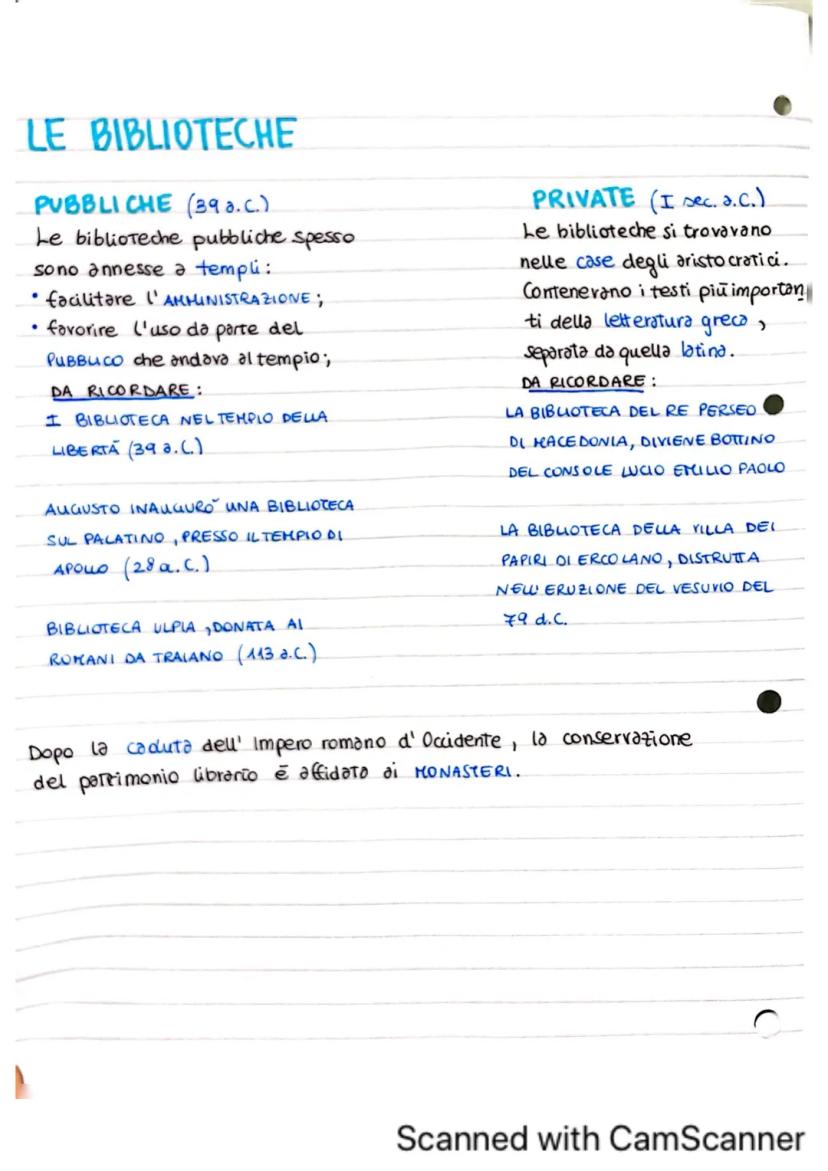 LE BIBLIOTECHE
PUBBLICHE (39 a.C.)
Le biblioteche pubbliche spesso
sono annesse a templi:
• facilitare l'AMMINISTRAZIONE;
• favorire l'uso da parte del
PUBBLICO che andava al tempio;
DA RICORDARE:
I BIBLIOTECA NEL TEMPIO DELLA
LIBERTÀ (39 a.C.)
AUGUSTO INAUGURÒ UNA BIBLIOTECA
SUL PALATINO, PRESSO IL TEMPIO DI
APOLLO (28 a.C.)
BIBLIOTECA ULPIA, DONATA AI
ROMANI DA TRAIANO (113 a.C.)
PRIVATE (I sec. a.C.)
Le biblioteche si trovavano
nelle case degli aristocratici.
Contenevano i testi più importan
ti della letteratura greca,
separata da quella latina.
DA RICORDARE:
LA BIBLIOTECA DEL RE PERSEO
DI MACEDONIA, DIVIENE BOTTINO
DEL CONSOLE LUCIO EMILIO PAOLO
LA BIBLIOTECA DELLA VILLA DEI
PAPIRI DI ERCOLANO, DISTRUTTA
NELL'ERUZIONE DEL VESUVIO DEL
79 d.C.
Dopo la caduta dell'Impero romano d'Occidente, la conservazione
del patrimonio librario è affidata ai MONASTERI.
Scanned with CamScanner